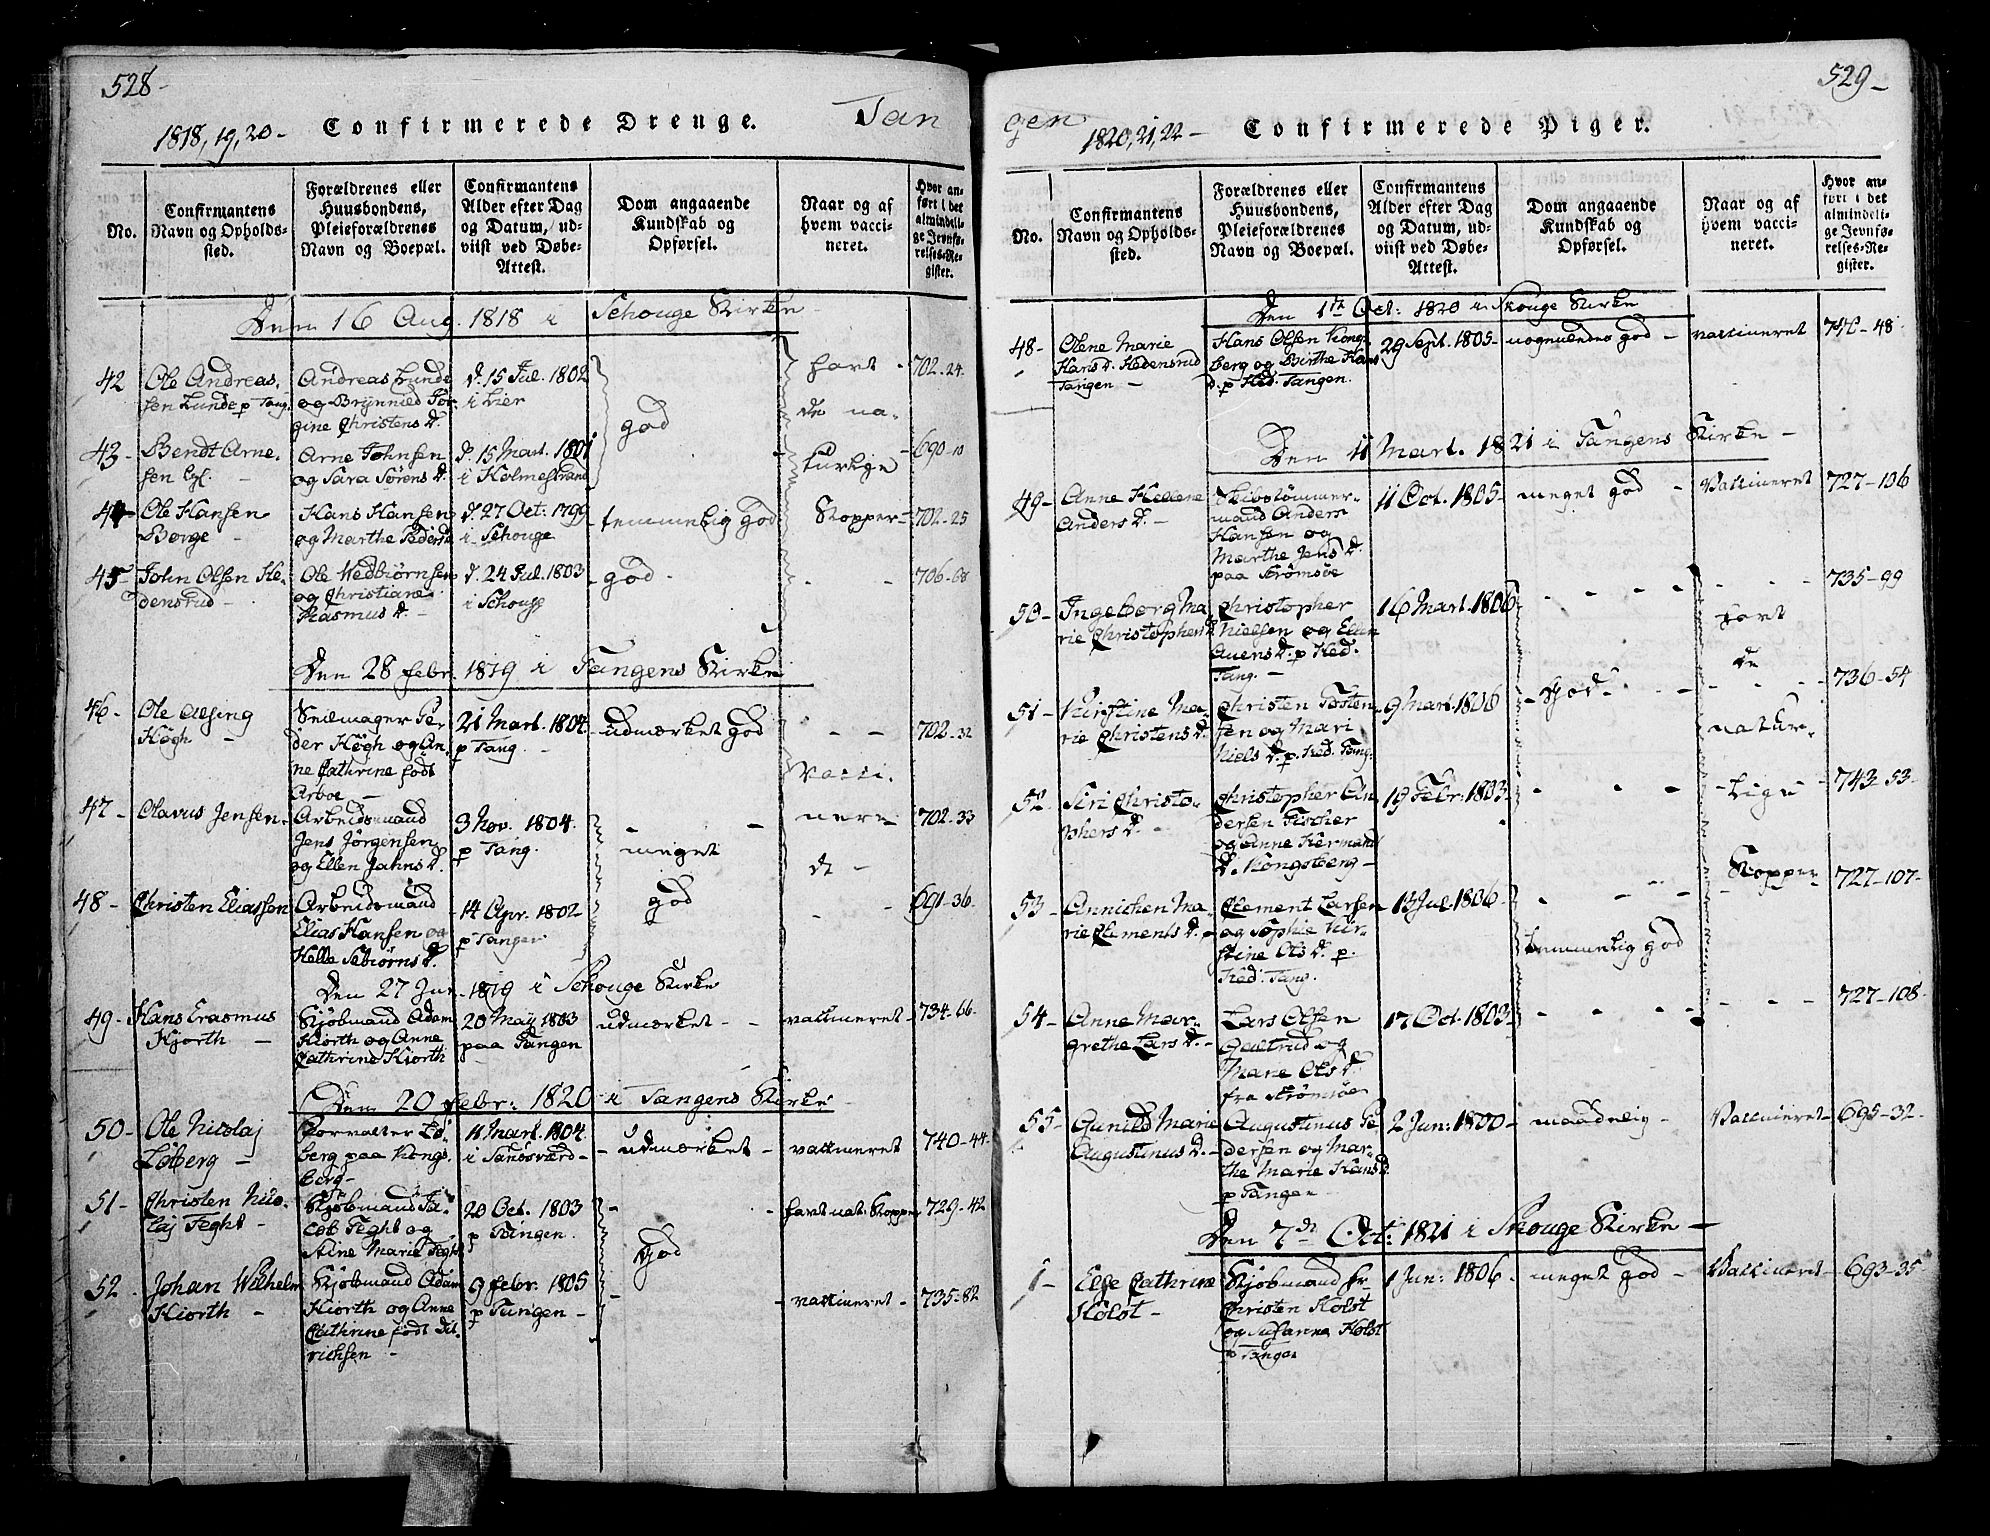 528-
Tan
1818, 19, 20- Confirmerede Drenge.
No.
Confirmantens
Navn og Opholds-
sted.
Forældrenes eller
Huusbondens,
Pleieforældrenes
Navn og Boepæl.
Confirmantens
Alder efter Dag
og Datum, ud-
viist ved Døbe-
Attest.
Dom angaaende
Kundskab og
Opførsel.
Naar og af
hvem vacci-
neret.
Hvor an-
ført i det
almindeli-
ge Jevnfø-
relses-Re-
gister.
Den 16 Aug. 1818 i Schouge Kirke
42
Ole Andreas.
sen Lunde p Tang.
Andreas Lunde
og Brynnild Jør-
gine Christens d.
d. 15 Jul. 1802
i Lier
god
havt
de na-
702-24.
43-
Bendt Arne-
sen
Arne Johnsen
og Sara Sørens d.
d. 15 Mart. 1801
i Holmestrand
turlige
690-10
44
Ole Hansen
Borge -
Hans Hansen
og Marthe Peders d
d. 27 Oct: 1799
i Schouge
temmelig god
Kopper-
702-25
45
John Olsen He-
densrud -
Ole Wedbiørnsen
og Christiane
Rasmus d. -
d. 24 Jul. 1803
i Schouge
god
706-68
Den 28 febr. 1819 i Tangens Kirke
46-
Ole Alsing
Høgh -
Seilmager Pe-
der Høgh og An-
ne Cathrine født
Arboe -
21 Mart. 1804.
p Tang. -
udmærket god
Vacci-
702-32
47-
Olavus Jensen.
Arbeidsmand
Jens Jørgensen
og Ellen Jahns d.
3 Nov. 1804.
p Tang.
meget
nere
702-33
48-
Christen Eliassen
Arbeidsmand
Elias Hansen og
Helle Sebiørns d.
14 Apr. 1802
p Tangen
god
de -
691-36.
Den 27 Jun. 1819 i Schouge Kirke
49-
Hans Erasmus
Hjorth -
Kjøbmand Adam
Hiorth og Anne
Cathrine Hiorth
20 May 1803
paa Tangen
udmærket - -
vaccineret-
734-66.
Den 20 febr: 1820 i Tangens Kirke
50-
Ole Nicolaj
Løberg -
Forvalter Lø-
berg paa Kongs
berg-
11 Mart. 1804.
i Sandsværd -
udmærket -
vaccineret
740-44
51-
Christen Nico-
laj Teght -
Kjøbmand Ja-
cob Teght og
Stine Marie Teght
20 Oct. 1803
p Tangen.
God
havt nat. Kopper
729-42
52.
Johan Wilhelm
Hiorth -
Kjøbmand Adam
Hiorth og Anne
Cathrine født Did-
richsen -
9 febr. 1805
p Tangen -
vaccineret-
735-82
529-
gen
1820, 21, 22- Confirmerede Piger.
No.
Confirmantens
Navn og Opholds-
sted.
Forældrenes eller
Huusbondens,
Pleieforældrenes
Navn og Boepæl.
Confirmantens
Alder efter Dag
og Datum, ud-
viist ved Døbe-
Attest.
Dom angaaende
Kundskab og
Opførsel.
Naar og af
hvem vacci-
neret.
Hvor an-
ført i det
almindeli-
ge Jevnfø-
relses-Re-
gister.
Den 1te Oct: 1820 i Skouge Kirke
48-
Olene Marie
Hans d. Hedensrud
Tangen -
Hans Olsen Kongs
berg og Birthe Hans
d. p Hed. Tangen.
29 Sept. 1805-
nogenledes god -
vaccineret
Den 11 Mart. 1821 i Tangens Kirke -
49-
Anne Hellene
Anders d. -
Skibstømmer-
mand Anders
Hansen og
Marthe Jens d.
paa Strømsøe
11 Oct. 1805-
meget god -
Vaccineret
727-106
50-
Ingeborg Ma
rie Christophers d.
Christopher
Nielsen og Ellen
Auens d. p Hed.
Tang. -
16 Mart. 1806
havt
735-99
51-
Kirstine Ma-
rie Christens d.
Christen Tosten
sen og Mari
Niels d. p. Hed. Tang.
9 Mart. 1806
God
de
natur-
736-54
52-
Siri Christo-
phers d. -
Christopher An
dersen Fischer
og Anne Hermans
d. Kongsberg -
19 Febr: 1803-
lige
743-53
53-
Annichen Ma-
rie Clements d. -
Clement Larsen
og Sophie Kir-
stine Ols d. p.
Hed. Tang.
13 Jul. 1806
temmelig god
Kopper
727-107-
54-
Anne Mar-
grethe Lars d. -
Lars Olsen
Galtrud og
Marie Ols d.
fra Strømsøe
17 Oct. 1803-
727-108-
55-
Gunild Marie
Augustinus d. -
Augustinus Pe
dersen og Mar-
the Marie Hans d.
p Tangen -
2 Jun: 1800-
maadelig -
Vaccineret-
695-32-
Den 7de Oct: 1821 i Skouge Kirke -
1-
Else Cathrine
Holst -
Kjøbmand Hr
Christen Holst
og Susanna Holst
p Tangen
1 Jun: 1806.
meget god -
Vaccineret-
693-35